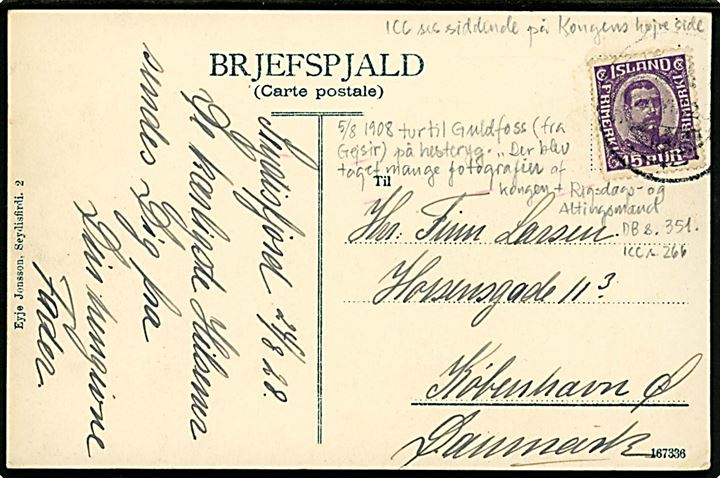 ICC ses siddende på Kongens højre side
BRJEFSPJALD
(Carte postale)
ÍSLAND
FRÍMERKI
15 AUR.
5/8 1908 tur til Guldfoss (fra
Gejsir) på hesteryg. „Der blev
taget mange fotografier af
kongen + Rigsdags- og
Altingsmænd
DB s. 351.
ICC s. 266
Til
Hr. Finn Larsen
Horsensgade 11³
København Ø
Danmark
Seydisfjord 24/8 28.
De kærligste Hilsner
sendes Dig fra
Din hengivne
Fader.
Eyjo Jonsson, Seydisfirdi. 2
167336